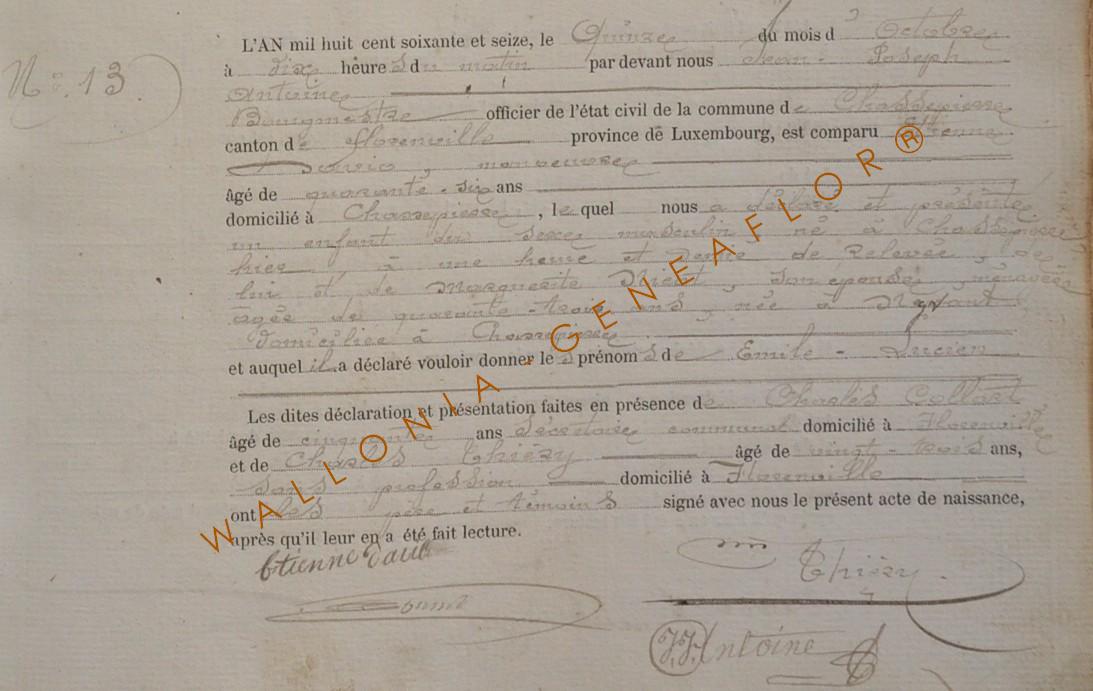 N° 13.
L'AN mil huit cent soixante et seize, le Quinze du mois d'Octobre
à dix heures du matin par devant nous Jean - Joseph
Antoine
Bourgmestre officier de l'état civil de la commune de Chassepierre
canton de Florenville province de Luxembourg, est comparu Etienne
manoeuvre
âgé de quarante - six ans
domicilié à Chassepierre, le quel nous a déclaré et présenté
un enfant du sexe masculin, né à Chassepierre
hier, à une heure et demie de Relevée, de
lui et de Marguerite son épouse, ménagère
agée de quarante - trois ans, née à
domiciliée à Chassepierre
et auquel il a déclaré vouloir donner les prénoms de Emile - Lucien
Les dites déclaration et présentation faites en présence de Charles Collart
âgé de cinquante ans Sécretaire communal domicilié à Florenville
et de Charles Thiéry âgé de vingt - trois ans,
sans profession domicilié à Florenville
ont les père et témoins signé avec nous le présent acte de naissance,
après qu'il leur en a été fait lecture.
Etienne
Thiéry.
J.J. Antoine
WALLONIA-GENEAFLOR®